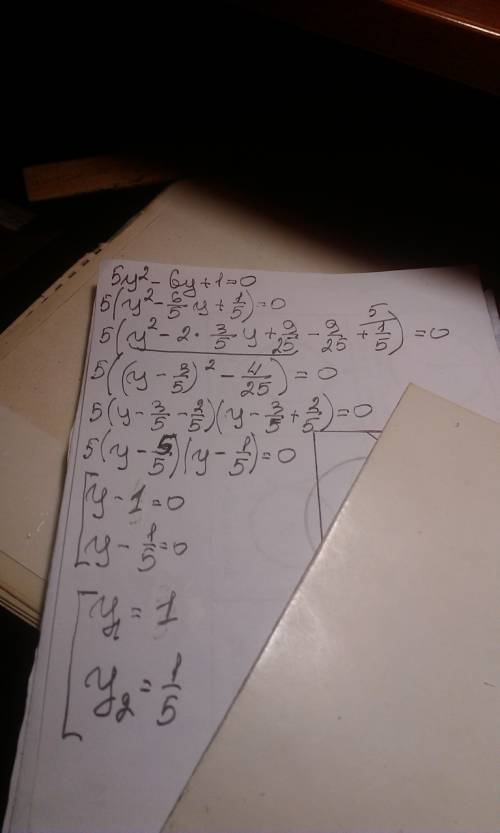 5y² - 6y + 1 = 0
5(y² - 6/5 y + 1/5) = 0
5(y² - 2 · 3/5 y + 9/25 - 9/25 + 1/5 ⁵) = 0
5((y - 3/5)² - 4/25) = 0
5(y - 3/5 - 2/5)(y - 3/5 + 2/5) = 0
5(y - 5/5)(y - 1/5) = 0
[y - 1 = 0
y - 1/5 = 0
[y₁ = 1
y₂ = 1/5